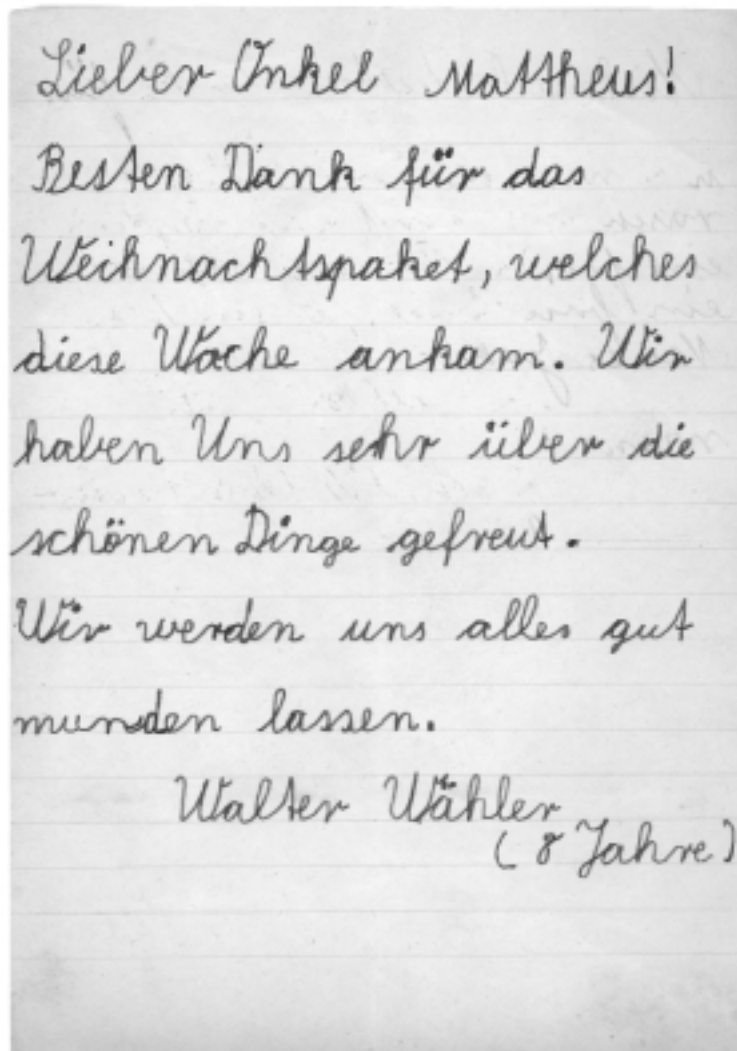 Lieber Onkel Mattheus!
Besten Dank für das
Weihnachtspaket, welches
diese Woche ankam. Wir
haben Uns sehr über die
schönen Dinge gefreut.
Wir werden uns alles gut
munden lassen.
Walter Wähler
(8 Jahre)